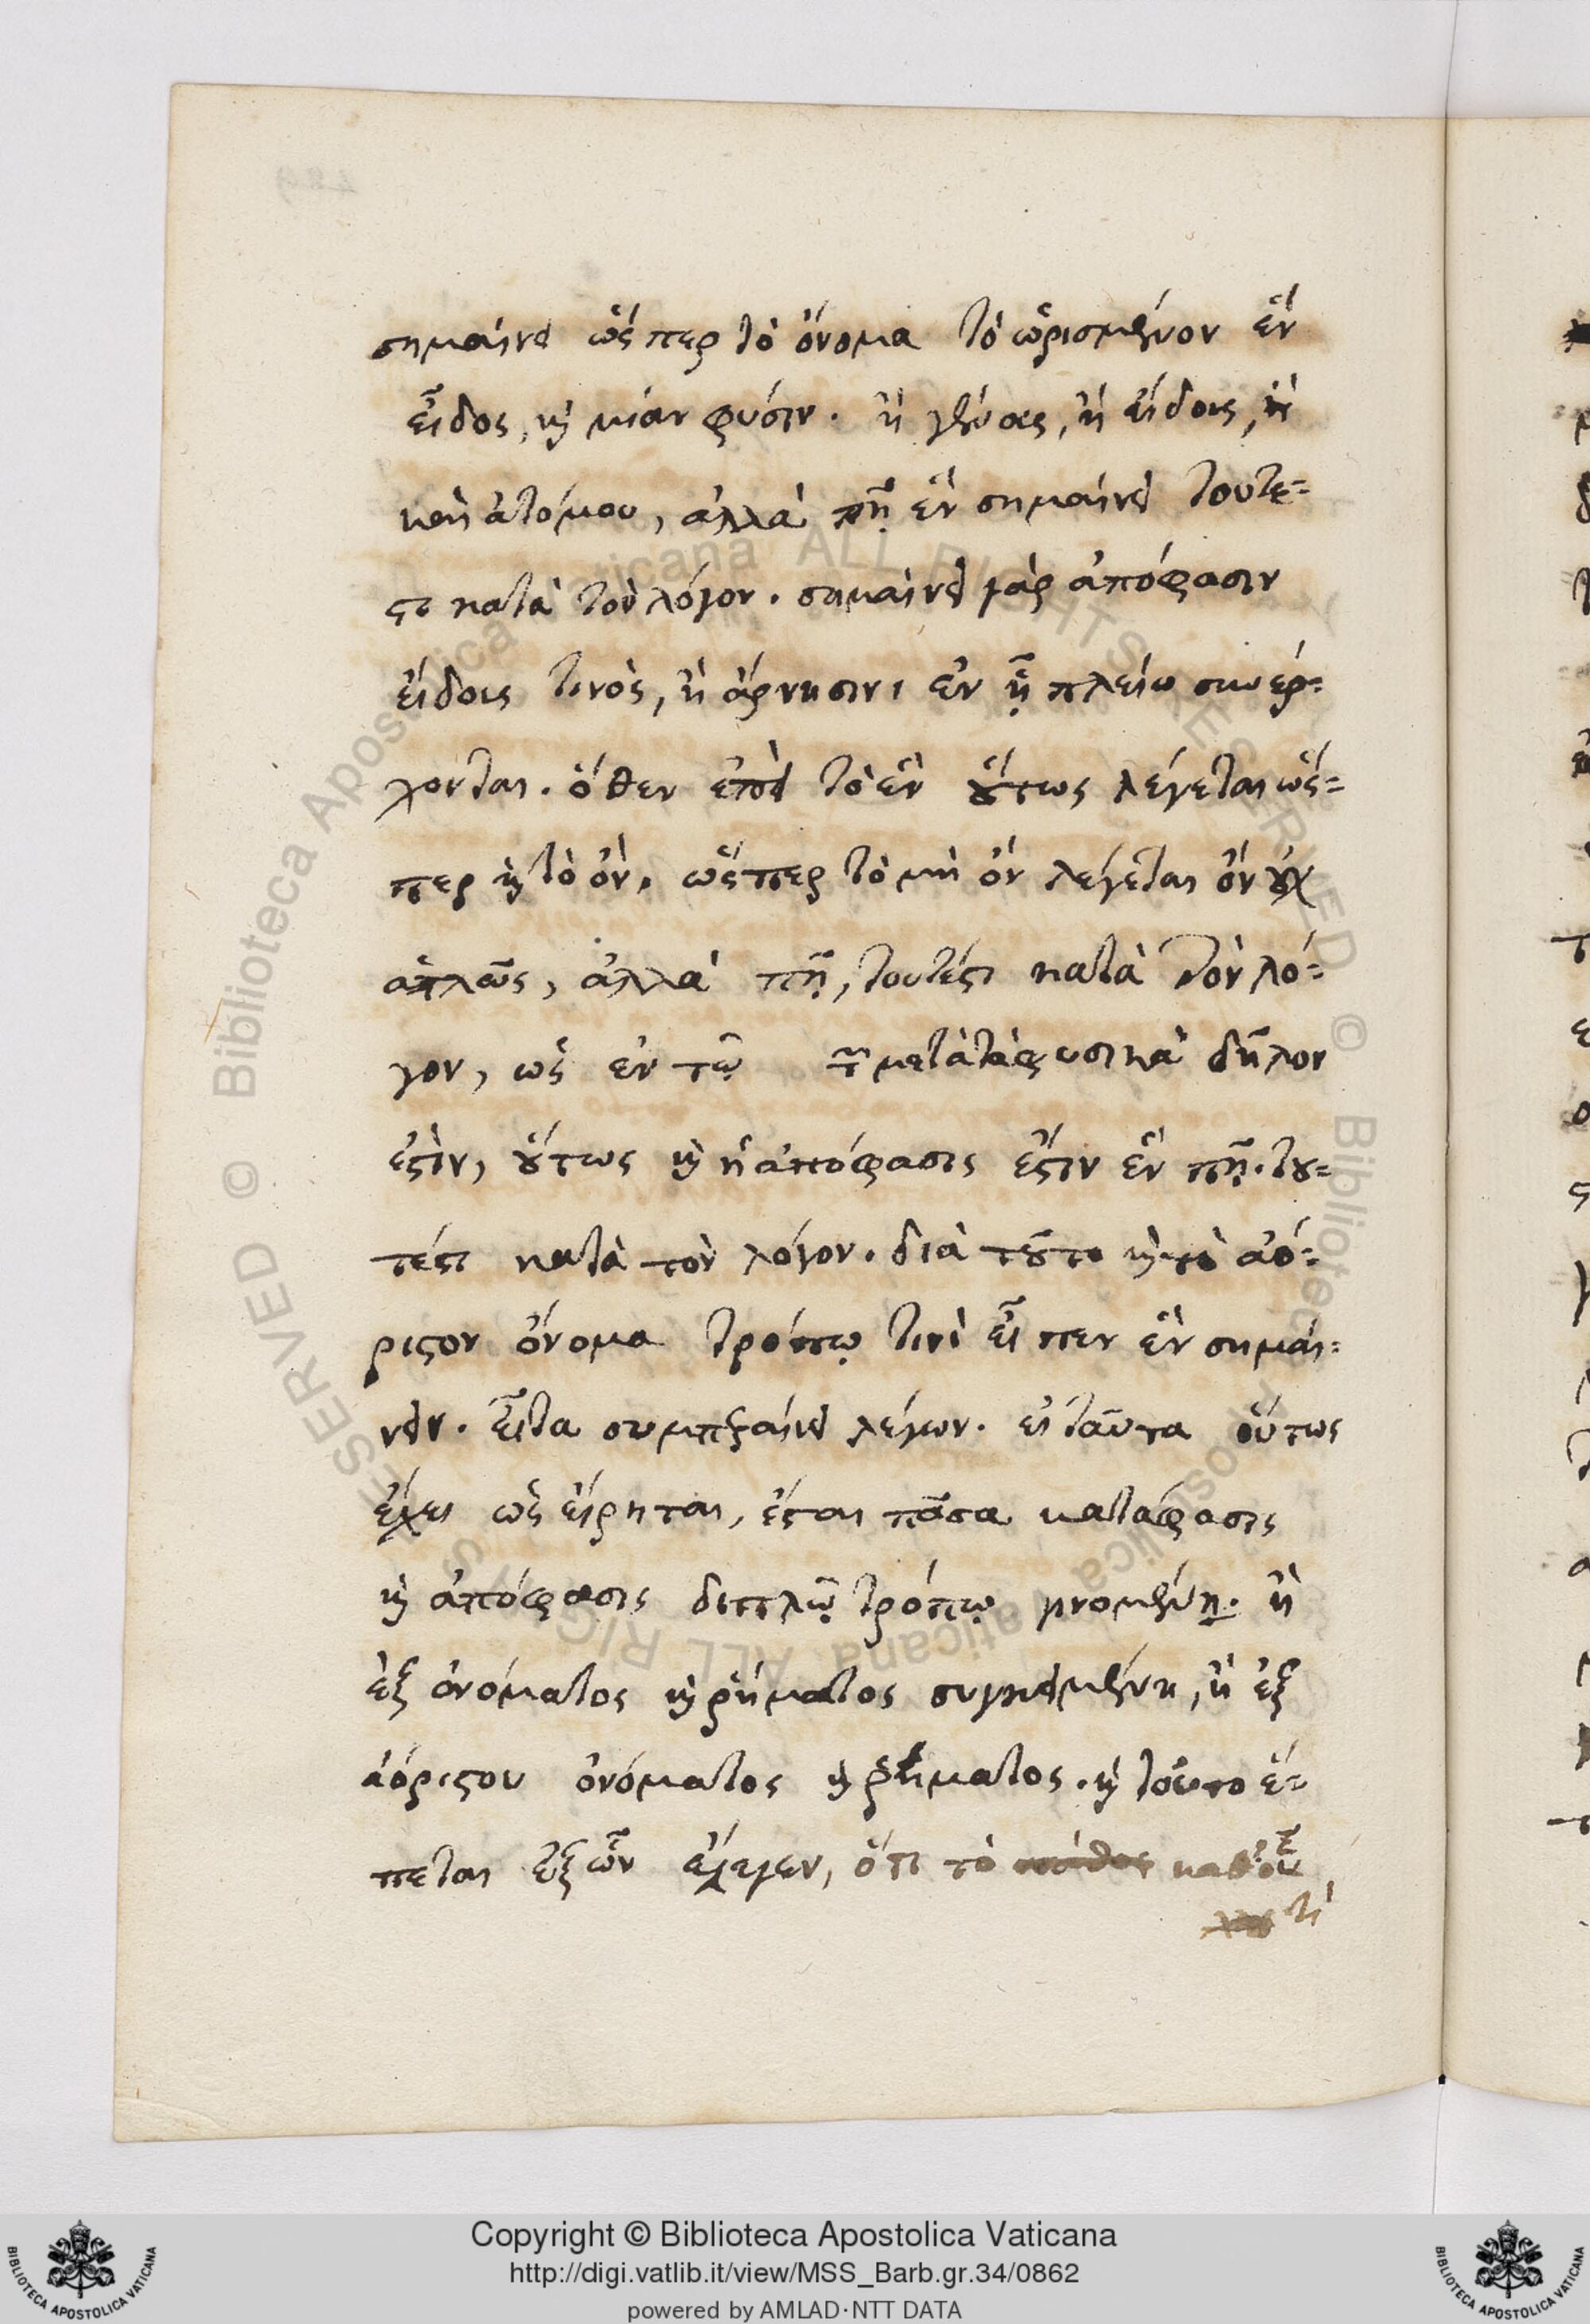 σημαίνει ὥσπερ τὸ ὄνομα τὸ ὡρισμένον ἓν
εἶδος, καὶ μίαν φύσιν. ἢ γένους, ἢ εἴδους, ἢ
καὶ ἀτόμου, ἀλλὰ πῆ ἓν σημαίνει τουτέ-
στι κατὰ τὸν λόγον. σημαίνει γὰρ ἀπόφασιν
εἴδους τινὸς, ἢ ἄρνησιν ἐν ᾗ πλείω συνέρ-
χονται. ὅθεν ἐπεὶ τὸ ἓν οὕτως λέγεται ὥσ-
περ καὶ τὸ ὄν, ὥσπερ τὸ μὴ ὂν λέγεται ὂν οὐχ
ἁπλῶς, ἀλλὰ πῆ, τουτέστι κατὰ τὸν λό-
γον, ὡς ἐν τῷ τῶν μετὰ τὰ φυσικὰ δῆλον
ἐστὶν, οὕτως καὶ ἡ ἀπόφασις ἐστὶν ἓν πῆ. του-
τέστι κατὰ τὸν λόγον. διὰ τοῦτο καὶ τὸ ἀό-
ριστον ὄνομα τρόπῳ τινὶ εἶπεν ἓν σημαί-
νειν. εἶτα συμπεραίνει λέγων. εἰ ταῦτα οὕτως
ἔχει ὡς εἴρηται, ἔσται πᾶσα κατάφασις
καὶ ἀπόφασις διπλῷ τρόπῳ γινομένη. ἢ
ἐξ ὀνόματος καὶ ῥήματος συγκειμένη, ἢ ἐξ
ἀορίστου ὀνόματος καὶ ῥήματος. καὶ τοῦτο ἕ-
πεται ἐξ ὧν ἔλεγεν, ὅτι τὸ καθ' οὗ
τὶ
Copyright © Biblioteca Apostolica Vaticana
http://digi.vatlib.it/view/MSS_Barb.gr.34/0862
powered by AMLAD·NTT DATA